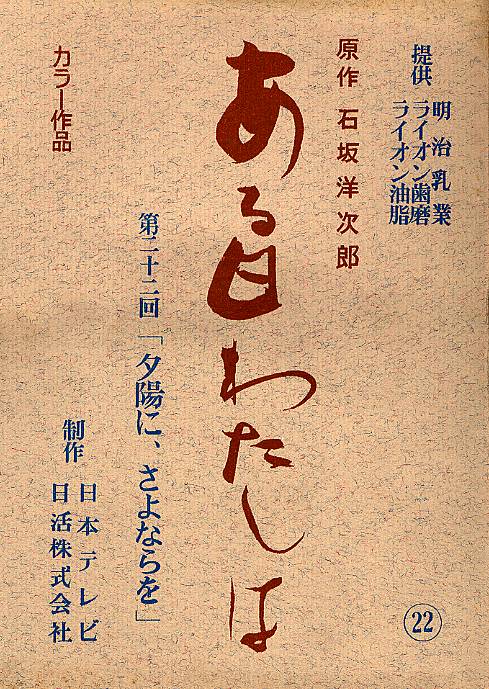 提供
明治乳業
ライオン歯磨
ライオン油脂
原作 石坂洋次郎
ある日わたしは
カラー作品
第二十二回「夕陽に、さよならを」
制作
日本テレビ
日活株式会社
22